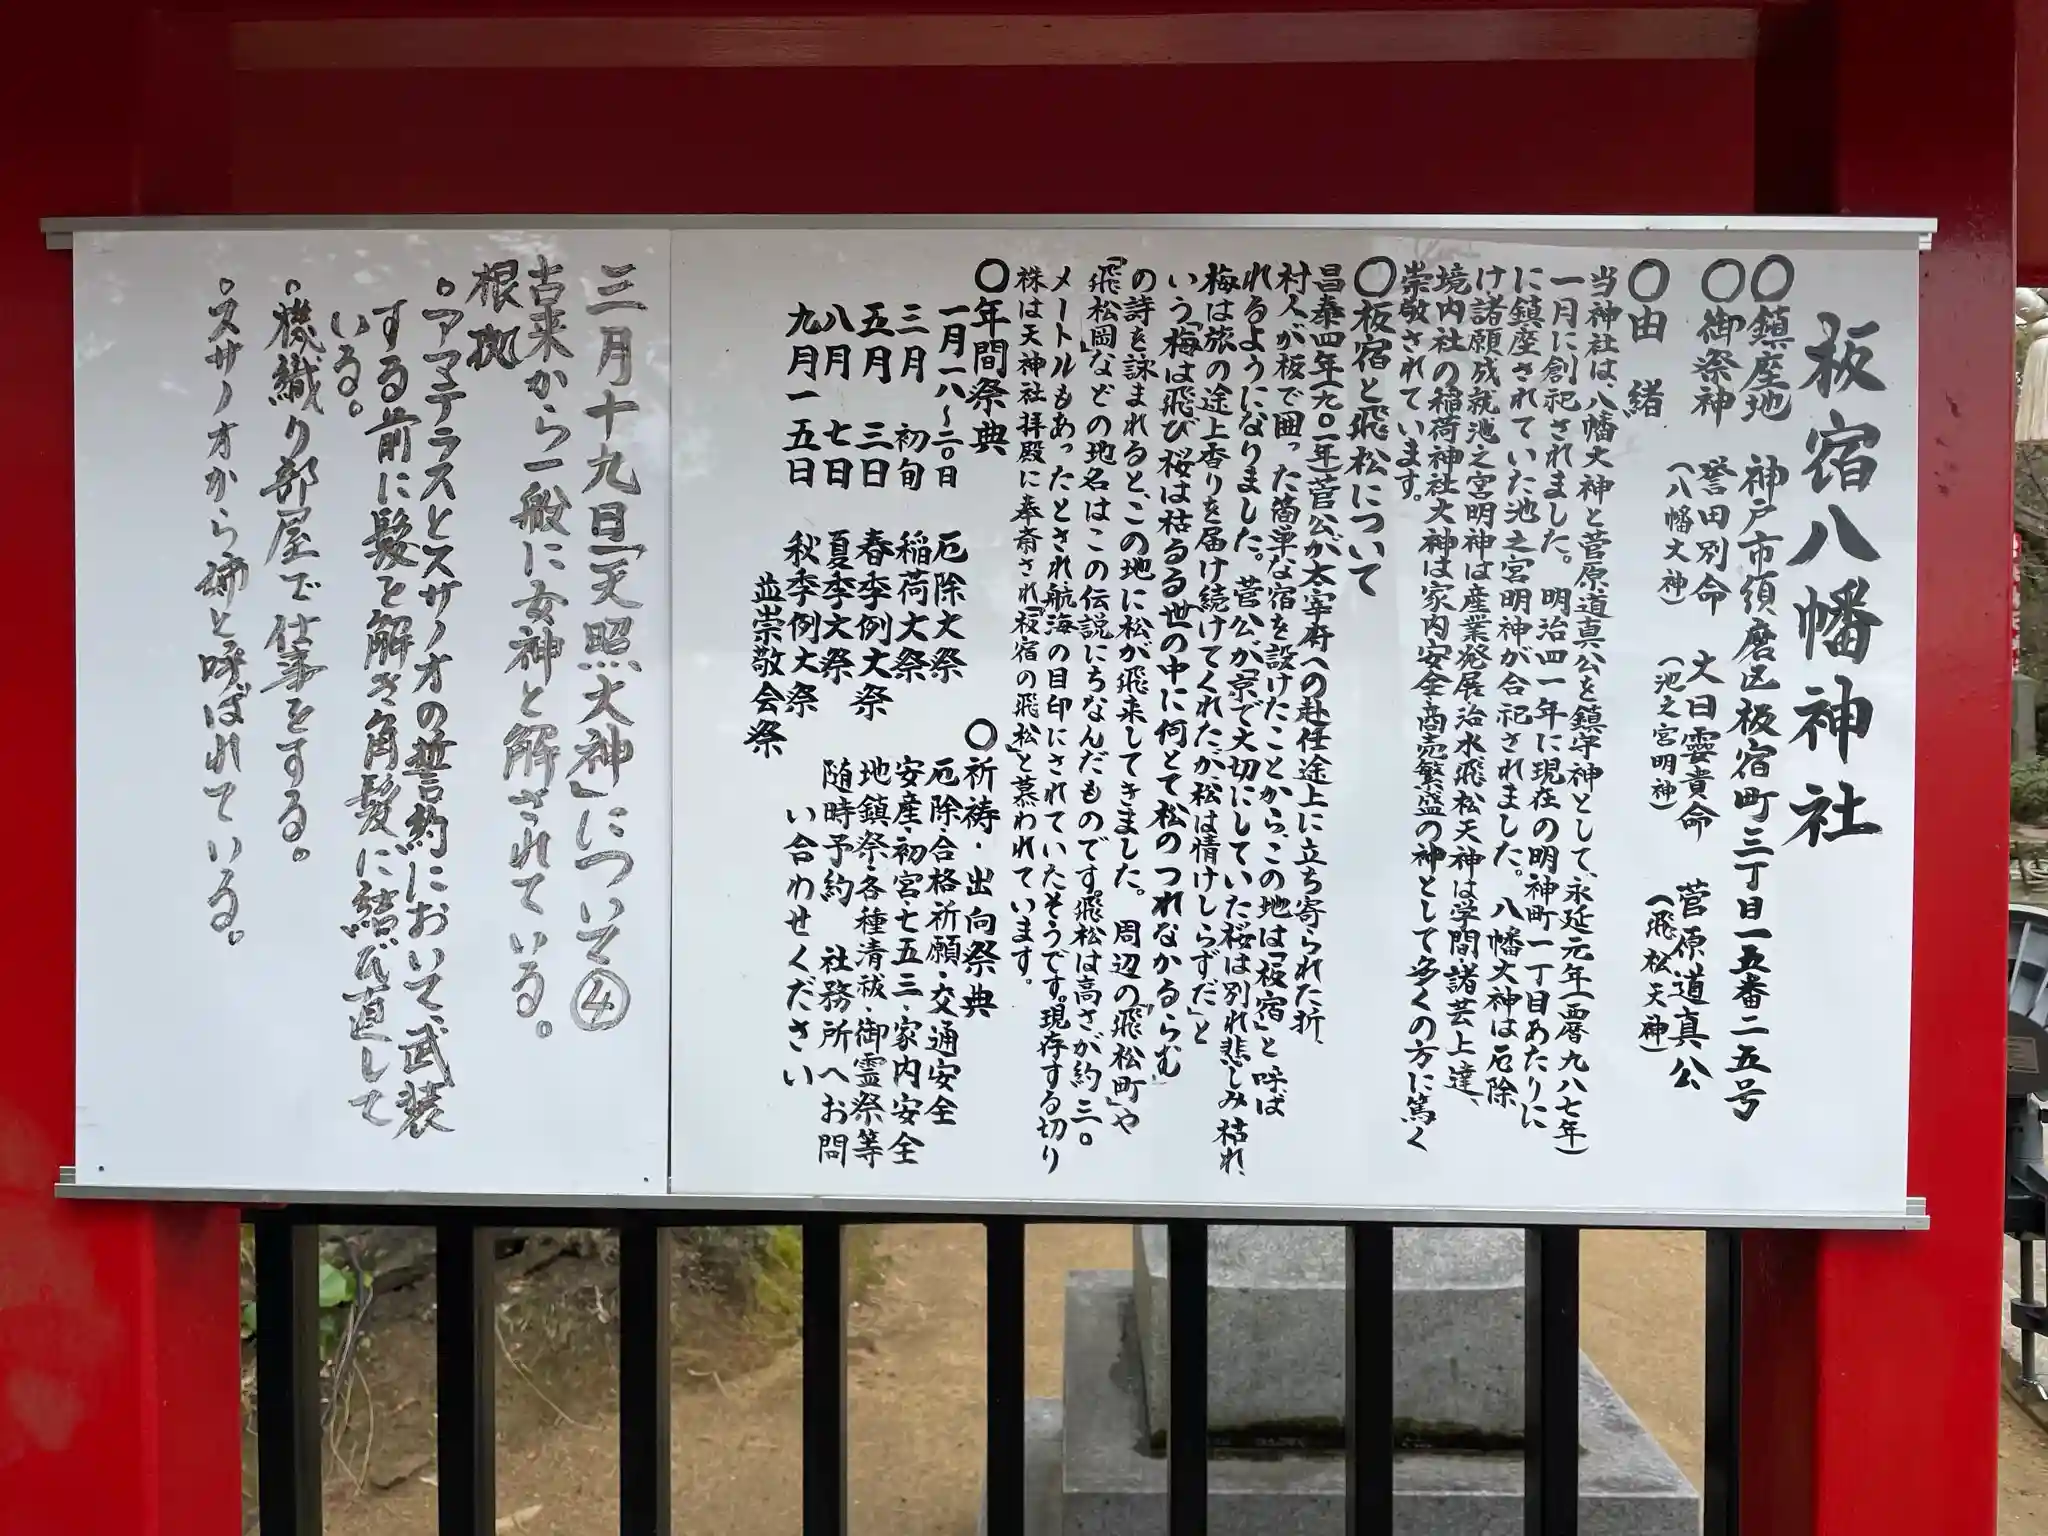 板宿八幡神社
〇鎮座地　神戸市須磨区板宿町三丁目一五番二五号
〇御祭神　誉田別命　大日孁貴命　菅原道真公
（八幡大神）　（池之宮明神）　（飛松天神）
〇由　緒
当神社は、八幡大神と菅原道真公を鎮守神として、永延元年（西暦九八七年）
一月に創祀されました。明治四一年に現在の明神町一丁目あたりに
に鎮座されていた池之宮明神が合祀されました。八幡大神は厄除
け諸願成就池之宮明神は産業発展治水飛松天神は学問・諸芸上達、
境内社の稲荷神社大神は家内安全商売繁盛の神として多くの方に篤く
崇敬されています。
〇板宿と飛松について
昌泰四年（九〇一年）菅公が太宰府への赴任途上に立ち寄られた折、
村人が板で囲った簡単な宿を設けたことから、この地は「板宿」と呼ば
れるようになりました。菅公が「京で大切にしていた桜は別れ悲しみ枯れ、
梅は旅の途上香りを届け続けてくれたが、松は情けしらずだ」と
いう「梅は飛び桜は枯るる世の中に何とて松のつれなかるらむ」
の詩を詠まれると、この地に松が飛来してきました。周辺の「飛松町」や
「飛松岡」などの地名はこの伝説にちなんだものです。飛松は高さが約三〇
メートルもあったとされ航海の目印にされていたそうです。現存する切り
株は天神社拝殿に奉斎され「板宿の飛松」と慕われています。
〇年間祭典
一月一八〜二〇日　厄除大祭
三月　初旬　稲荷大祭
五月　三日　春季例大祭
八月　七日　夏季大祭
九月一五日　秋季例大祭
並崇敬会祭
〇祈祷・出向祭典
厄除・合格祈願・交通安全
安産・初宮・七五三・家内安全
地鎮祭・各種清祓・御霊祭等
随時予約　社務所へお問
い合わせください
三月十九日「天照大神」について④
古来から一般に女神と解されている。
根拠
・アマテラスとスサノオの誓約において、武装
する前に髪を解き角髪に結び直して
いる。
・機織り部屋で仕事をする。
・スサノオから姉と呼ばれている。